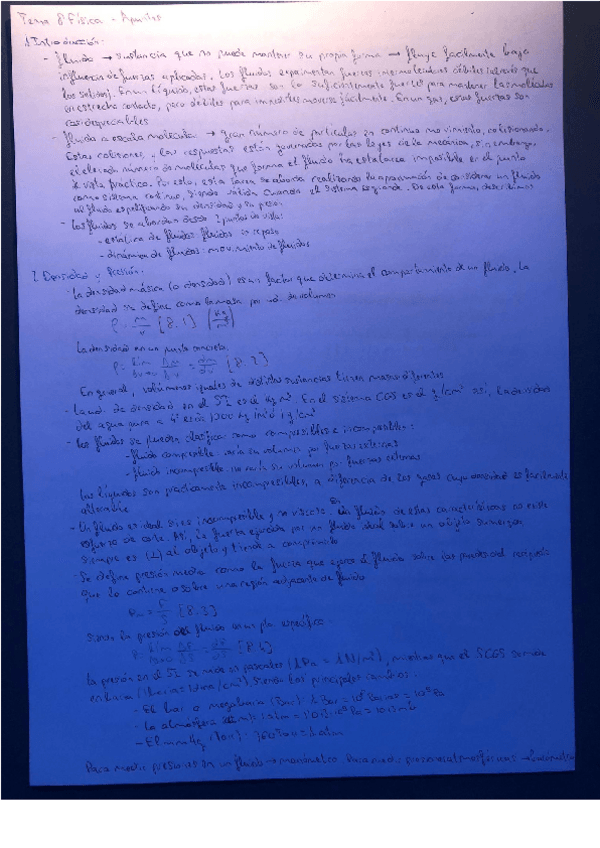 Tema 8 Física - Apuntes
1. Introducción:
- Fluido → sustancia que no puede mantener su propia forma → fluye facilmente bajo
influencia de fuerzas aplicadas. Los fluidos experimentan fuerzas intermoleculares débiles (al revés que
los sólidos). En un líquido, estas fuerzas son lo suficientemente fuertes para mantener las moléculas
en estrecho contacto, pero débiles para moverse fácilmente. En un gas, esas fuerzas son
casi despreciables
- Fluido a escala molecular → gran número de partículas en continuo movimiento, colisionando.
Estas colisiones y las respuestas están gobernadas por las leyes de la mecánica, sin embargo,
el elevado número de moléculas que forma el fluido a esta escala imposible en el punto
de vista práctico. Por esto, esta tarea se aborda realizando la aproximación de considerar un fluido
como sistema continuo, siendo válida cuando el sistema es grande. De esta forma, describimos
el fluido especificando su densidad y su presión
- Los fluidos se abordan desde 2 puntos de vista:
- estática de fluidos: fluidos en reposo
- dinámica de fluidos: movimiento de fluidos
2. Densidad y Presión:
- La densidad másica (o densidad) es un factor que determina el comportamiento de un fluido. La
densidad se define como la masa por ud. de volumen
ρ = m/V [8.1] (kg/m³)
La densidad en un punto concreto:
ρ = lim Δm/ΔV = dm/dV [8.2]
En general, volúmenes iguales de distintas sustancias tienen masas diferentes
- La ud. de densidad en el SI es el kg/m³. En el sistema CGS es el g/cm³ así, la densidad
del agua para a 4º es de 1000 kg/m³ o 1 g/cm³
- Los fluidos se pueden clasificar como compresibles e incompresibles:
- fluido compresible: varía su volumen por fuerzas externas
- fluido incompresible: no varía su volumen por fuerzas externas
Los líquidos son prácticamente incompresibles, a diferencia de los gases cuya densidad es facilmente
alterable
- Un fluido es ideal si es incompresible y no viscoso. En un fluido de estas características no existe
esfuerzo de corte. Así, la fuerza ejercida por un fluido ideal sobre un objeto sumergido
siempre es (⊥) al objeto y tiende a comprimirlo
- Se define presión media como la fuerza que ejerce el fluido sobre las paredes del recipiente
que lo contiene o sobre una región adyacente de fluido
Pm = F/S [8.3]
Siendo la presión del fluido en un pto específico:
P = lim ΔF/ΔS = dF/dS [8.4]
La presión en el SI se mide en pascales (1Pa = 1N/m²), mientras que el SCGS se mide
en baria (1baria = 1dina/cm²). Siendo los principales cambios:
- El bar o megabaria (Bar): 1 Bar = 10⁶ baria = 10⁵ Pa
- La atmósfera 1 atm = 1'013·10⁵ Pa = 1013 mb
- El mmHg (Torr): 760 Torr = 1 atm
Para medir presiones en un fluido → manómetro. Para medir presiones atmosféricas →